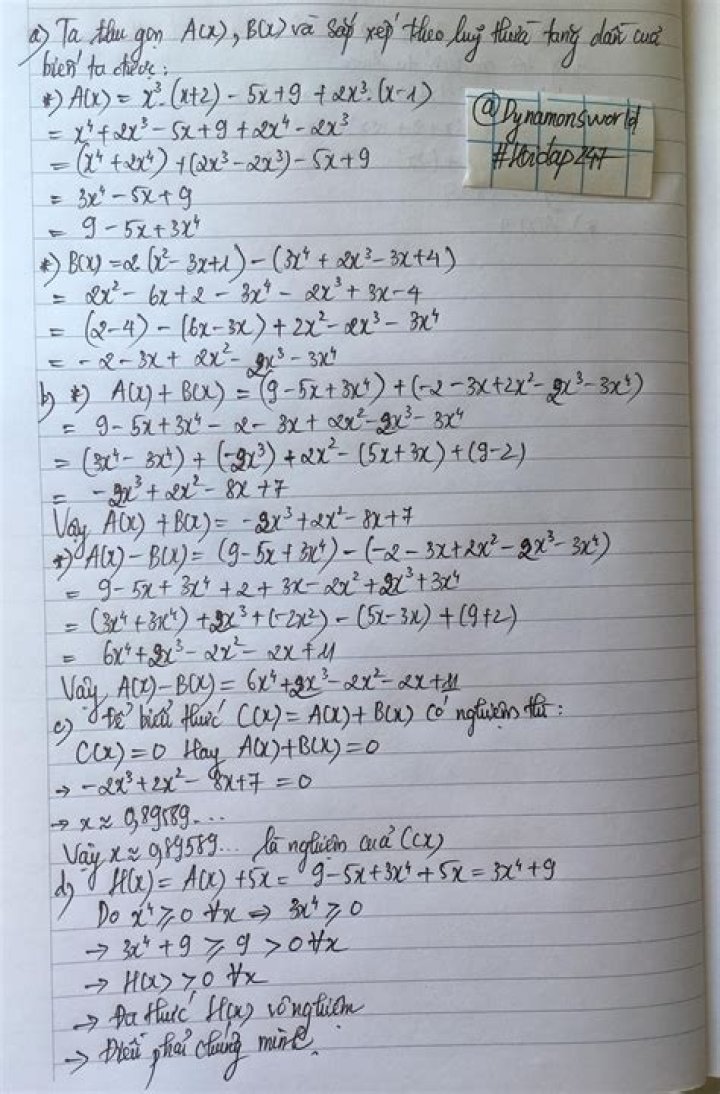 a) Ta thu gọn A(x), B(x) và sắp xếp theo luỹ thừa tăng dần của
biến ta được:
*) A(x) = x³.(x+2) - 5x + 9 + 2x³.(x-1)
= x⁴ + 2x³ - 5x + 9 + 2x⁴ - 2x³
= (x⁴ + 2x⁴) + (2x³ - 2x³) - 5x + 9
= 3x⁴ - 5x + 9
= 9 - 5x + 3x⁴
@Dynamonsworld
#Hoidap247
*) B(x) = 2(x² - 3x + 1) - (3x⁴ + 2x³ - 3x + 4)
= 2x² - 6x + 2 - 3x⁴ - 2x³ + 3x - 4
= (2-4) - (6x-3x) + 2x² - 2x³ - 3x⁴
= -2 - 3x + 2x² - 2x³ - 3x⁴
b) *) A(x) + B(x) = (9 - 5x + 3x⁴) + (-2 - 3x + 2x² - 2x³ - 3x⁴)
= 9 - 5x + 3x⁴ - 2 - 3x + 2x² - 2x³ - 3x⁴
= (3x⁴ - 3x⁴) + (-2x³) + 2x² - (5x + 3x) + (9-2)
= -2x³ + 2x² - 8x + 7
Vậy A(x) + B(x) = -2x³ + 2x² - 8x + 7
*) A(x) - B(x) = (9 - 5x + 3x⁴) - (-2 - 3x + 2x² - 2x³ - 3x⁴)
= 9 - 5x + 3x⁴ + 2 + 3x - 2x² + 2x³ + 3x⁴
= (3x⁴ + 3x⁴) + 2x³ + (-2x²) - (5x - 3x) + (9+2)
= 6x⁴ + 2x³ - 2x² - 2x + 11
Vậy A(x) - B(x) = 6x⁴ + 2x³ - 2x² - 2x + 11
c) Để biểu thức C(x) = A(x) + B(x) có nghiệm thì:
C(x) = 0 Hay A(x) + B(x) = 0
→ -2x³ + 2x² - 8x + 7 = 0
→ x ≈ 0,89589...
Vậy x ≈ 0,89589... là nghiệm của C(x)
d) H(x) = A(x) + 5x = 9 - 5x + 3x⁴ + 5x = 3x⁴ + 9
Do x⁴ ≥ 0 ∀x ⇒ 3x⁴ ≥ 0
→ 3x⁴ + 9 ≥ 9 > 0 ∀x
→ H(x) > 0 ∀x
→ Đa thức H(x) vô nghiệm
→ Điều phải chứng minh.